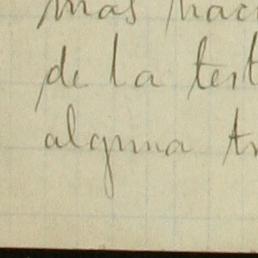 mas haci
de la test
alguna tr